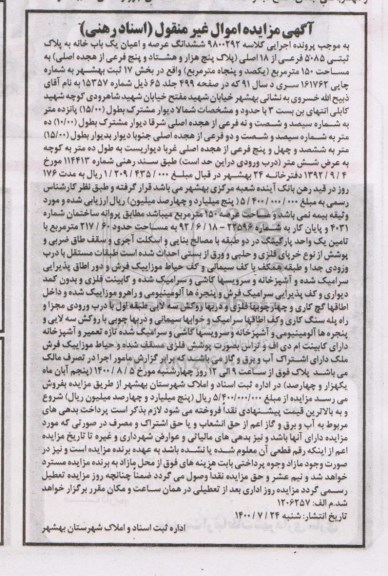 آگهی مزایده اموال غیر منقول (اسناد رهنی)
به موجب پرونده اجرایی کلاسه ۹۸۰۰۲۹۲ ششدانگ عرصه و اعیان یک باب خانه به پلاک
ثبتی ۵۰۸۵ فرعی از ۱۸ اصلی (پلاک پنج هزار و هشتاد و پنج فرعی از هجده اصلی) به
مساحت ۱۵۰ مترمربع (یکصد و پنجاه مترمربع) واقع در بخش ۱۷ ثبت بهشهر به شماره
چاپی ۱۶۱۷۶۲ سری د سال ۹۱ که در صفحه ۴۹۹ جلد ۶۵ ذیل شماره ۱۵۳۵۷ به نام آقای
ذبیح الله خسروی به نشانی بهشهر خیابان شهید مفتح خیابان شهید شاهرودی کوچه شهید
کابلی انتهای بن بست ۳ با حدود و مشخصات شمالا دیوار مشترک بطول (۱۵/۰۰) پانزده متر
به شماره سیصد و شصت و نه فرعی از هجده اصلی شرقا دیوار مشترک بطول (۱۰/۰۰) ده
متر به شماره سیصد و شصت و دو فرعی از هجده اصلی جنوبا دیوار بدیوار بطول (۱۵/۰۰)
متر به ششصد و چهل و پنج فرعی از هجده اصلی غربا دیواریست به طول ده متر به کوچه
به عرض شش متر (درب ورودی دراین حد است) طبق سند رهنی شماره ۱۱۴۴۱۳ مورخ
۱۳۹۲/۹/۴ دفترخانه ۲۴ بهشهر در قبال مبلغ ۱/۲۰۹/۴۳۵/۰۰۰ ریال به مدت ۱۷۶
روز در قید رهن بانک آینده شعبه مرکزی بهشهر می باشد قرار گرفته و طبق نظر کارشناس
رسمی به مبلغ ۵/۴۰۰/۰۰۰/۰۰۰ (پنج میلیارد و چهارصد میلیون) ریال ارزیابی شده و مورد
وثیقه بیمه نمی باشد و مساحت عرصه ۱۵۰ مترمربع میباشد مطابق پروانه ساختمان شماره
۴۰۳۱ و پایان کار به شماره ۲۲۵۹۶ - ۹۲/۶/۱۸ به مساحت حدود ۲۱۷/۶۰ مترمربع با
تامین یک واحد پارکینگ در دو طبقه با مصالح بنایی و اسکلت آجری و سقف طاق ضربی و
پوشش از نوع خرپای فلزی و حلبی و ورق از بستی احداث شده است طبقات مستقل با درب
ورودی جدا و طبقه همکف با کف سیمانی و کف حیاط موزاییک فرش و دور اطاق پذیرایی
سرامیک شده و آشپزخانه و سرویسها کاشی و سرامیک شده و کابینت فلزی و بدون کمد
دیواری و کف پذیرایی سرامیک فرش و پنجره ها آلومینیومی و راهرو موزاییک شده و داخل
اطاقها گچ کاری و چهارچوبها فلزی و دربها روکش سه لایی طبقه اول با درب ورودی مجزا و
راه پله سنگ کاری و کف اطاقها سرامیک و خوابها سیمانی و دربها چوبی با روکش سه لایی و
پنجره ها آلومینیومی و آشپزخانه و سرویسها کاشی و سرامیک شده تازه تعمیر و آشپزخانه
دارای کابینت ام دی اف و تراس بصورت پوشش فلزی مسقف شده و حیاط موزاییک فرش
ملک دارای اشتراک آب و برق و گاز می باشند که برابر گزارش مامور اجرا در تصرف مالک
می باشد پلاک فوق از ساعت ۹ الی ۱۲ روز چهارشنبه مورخ ۱۴۰۰/۸/۵ (پنجم آبان ماه
یکهزار و چهارصد) در اداره ثبت اسناد و املاک شهرستان بهشهر از طریق مزایده بفروش
می رسد مزایده از مبلغ ۵/۴۰۰/۰۰۰/۰۰۰ ریال (پنج میلیارد و چهارصد میلیون ریال) شروع
و به بالاترین قیمت پیشنهادی نقدا فروخته می شود لازم بذکر است پرداخت بدهی های
مربوط به آب و برق و گاز اعم از حق انشعاب و یا حق اشتراک و مصرف در صورتی که مورد
مزایده دارای آنها باشد و نیز بدهی های مالیاتی و عوارض شهرداری و غیره تا تاریخ مزایده
اعم از اینکه رقم قطعی آن معلوم شده یا نشده باشد به عهده برنده مزایده است و نیز در
صورت وجود مازاد وجوه پرداختی بابت هزینه های فوق از محل مازاد به برنده مزایده مسترد
خواهد شد و نیم عشر و حق مزایده نقدا وصول می گردد ضمنا چنانچه روز مزایده تعطیل
رسمی گردد مزایده روز اداری بعد از تعطیلی در همان ساعت و مکان مقرر برگزار خواهد
شد.م الف: ۱۲۰۶۲۵۷
تاریخ انتشار: شنبه ۲۴/۷/۱۴۰۰
اداره ثبت اسناد و املاک شهرستان بهشهر